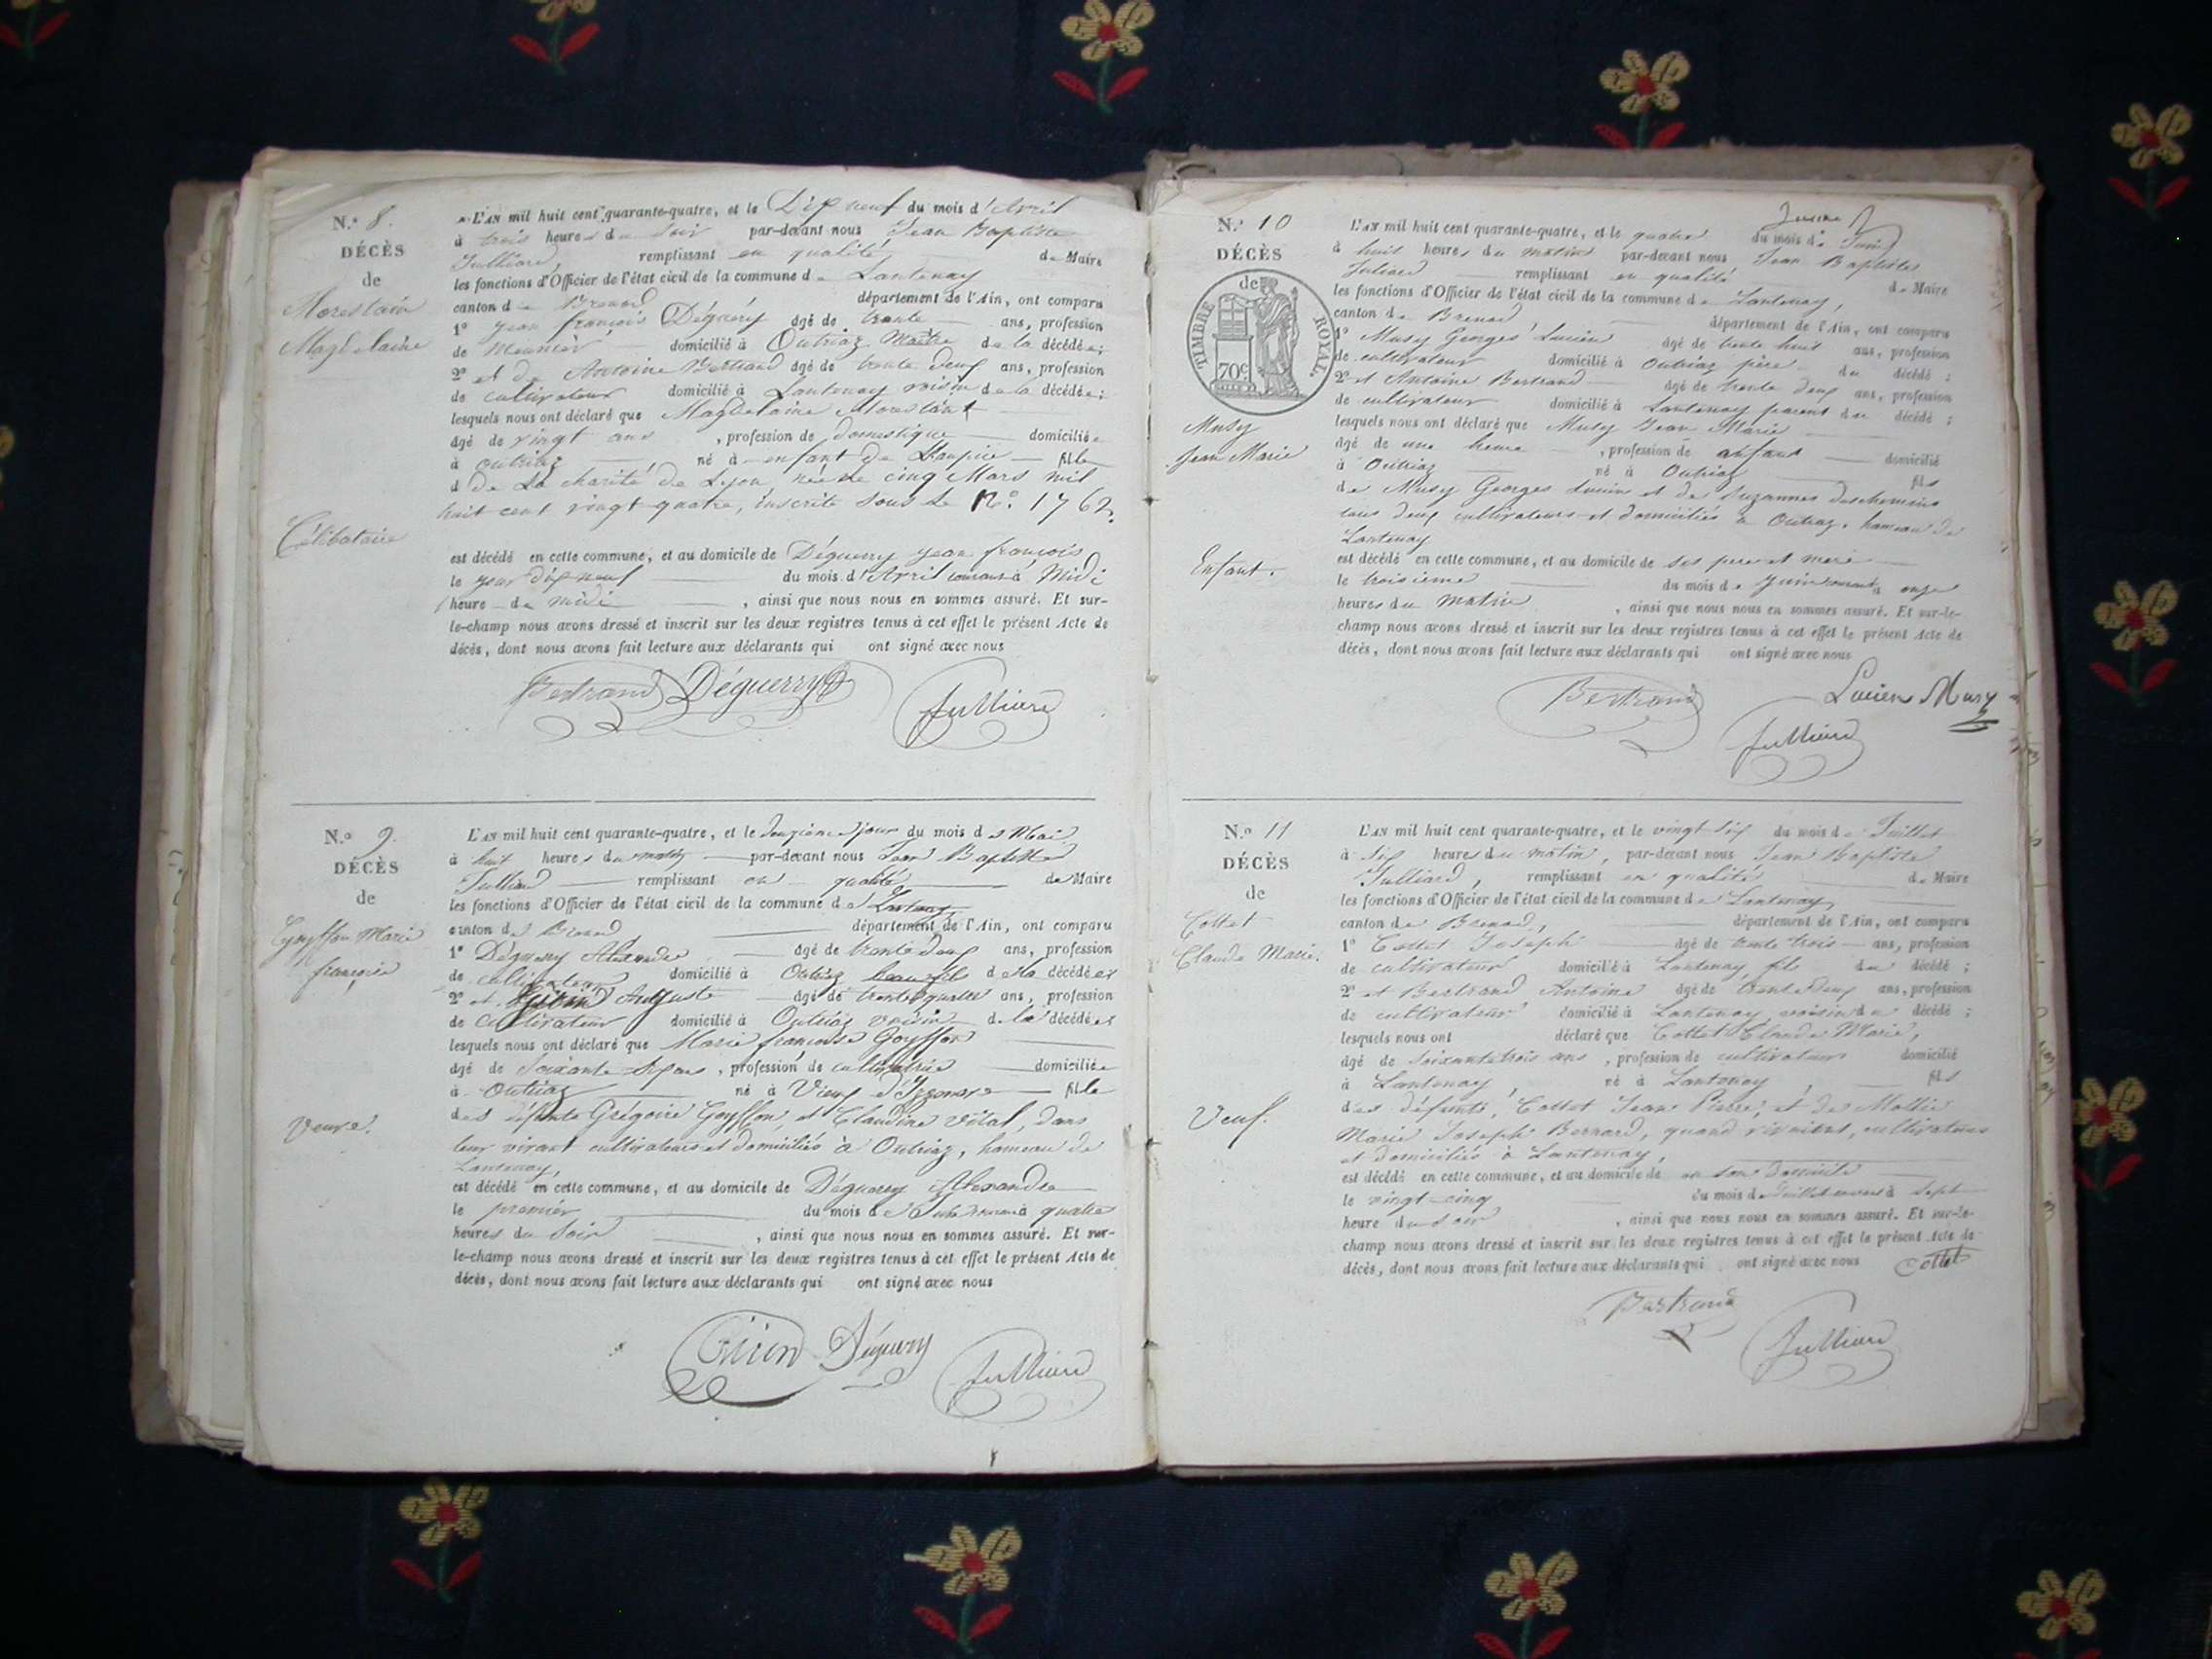 N.º 8.
DÉCÈS
de
Morestain
Magdelaine
Célibataire
L'AN mil huit cent quarante-quatre, et le Dix neuf du mois d'Avril
à trois heures du soir par-devant nous Jean Baptiste
Julliard, remplissant en qualité de Maire
les fonctions d'Officier de l'état civil de la commune de Lantenay
canton de Brenod département de l'Ain, ont comparu
1º Jean françois Déguerry agé de trente ans, profession
de Meunier domicilié à Outriaz Maître de la décédée;
2º et de Antoine Bertrand agé de trente deux ans, profession
de cultivateur domicilié à Lantenay voisin de la décédée;
lesquels nous ont déclaré que Magdelaine Morestain
agé de vingt ans, profession de domestique domiciliée
à Outriaz né à enfant de L'haupice fille
d de La charité de Lyon, née le cinq Mars mil
huit cent vingt-quatre, inscrite sous le Nº. 1762.
est décédé en cette commune, et au domicile de Déguerry jean françois
le jour dix neuf du mois d'Avril courant à Midi
heure de midi, ainsi que nous nous en sommes assuré. Et sur-
le-champ nous avons dressé et inscrit sur les deux registres tenus à cet effet le présent Acte de
décès, dont nous avons fait lecture aux déclarants qui ont signé avec nous
Bertrand Déguerry Julliard
N.º 9.
DÉCÈS
de
Goyffon Marie
françoise
Veuve.
L'AN mil huit cent quarante-quatre, et le deuxième jour du mois de Mai
à huit heures du matin par-devant nous Jean Baptiste
Julliard remplissant en qualité de Maire
les fonctions d'Officier de l'état civil de la commune de Lantenay
canton de Brenod, département de l'Ain, ont comparu
1º Déguerry Alexandre agé de trente deux ans, profession
de cultivateur domicilié à Outriaz beau-fils de la décédée
2º et Auguste agé de trente quatre ans, profession
de cultivateur domicilié à Outriaz voisin de la décédée
lesquels nous ont déclaré que Marie françoise Goyffon
agé de Soixante, profession de cultivatrice domiciliée
à Outriaz né à Vieux d'Izenave fille
des défunts Grégoire Goyffon, et Claudine Vital, dans
leur vivant cultivateurs et domiciliés à Outriaz, hameau de
Lantenay,
est décédé en cette commune, et au domicile de Déguerry Alexandre
le premier du mois de courant à quatre
heures du Soir, ainsi que nous nous en sommes assuré. Et sur-
le-champ nous avons dressé et inscrit sur les deux registres tenus à cet effet le présent Acte de
décès, dont nous avons fait lecture aux déclarants qui ont signé avec nous
Déguerry Julliard
N.º 10
DÉCÈS
de
TIMBRE ROYAL.
70c
Musy
Jean Marie
Enfant.
L'AN mil huit cent quarante-quatre, et le quatre du mois de Juin
à huit heures du matin par-devant nous Jean Baptiste
Juliard remplissant en qualité de Maire
les fonctions d'Officier de l'état civil de la commune de Lantenay,
canton de Brenod département de l'Ain, ont comparu
1º Musy Georges Lucien agé de trente huit ans, profession
de cultivateur domicilié à Outriaz père du décédé;
2º et Antoine Bertrand agé de trente deux ans, profession
de cultivateur domicilié à Lantenay parent du décédé;
lesquels nous ont déclaré que Musy Jean Marie
agé de une heure, profession de enfant domicilié
à Outriaz né à Outriaz fils
de Musy Georges Lucien et de Suzanne Deschemins
tous deux cultivateurs et domiciliés à Outriaz, hameau de
Lantenay
est décédé en cette commune, et au domicile de ses pere et mere
le troisième du mois de Juin courant à onze
heures du matin, ainsi que nous nous en sommes assuré. Et sur-le-
champ nous avons dressé et inscrit sur les deux registres tenus à cet effet le présent Acte de
décès, dont nous avons fait lecture aux déclarants qui ont signé avec nous
Bertrand Lucien Musy
Julliard
N.º 11
DÉCÈS
de
Cottet
Claude Marie.
Veuf.
L'AN mil huit cent quarante-quatre, et le vingt six du mois de Juillet
à six heures du matin, par-devant nous Jean Baptiste
Julliard, remplissant en qualité de Maire
les fonctions d'Officier de l'état civil de la commune de Lantenay
canton de Brenod, département de l'Ain, ont comparu
1º Cottet Joseph agé de trente trois ans, profession
de cultivateur domicilié à Lantenay fils du décédé;
2º et Bertrand Antoine agé de trente deux ans, profession
de cultivateur domicilié à Lantenay, voisin du décédé;
lesquels nous ont déclaré que Cottet Claude Marie,
agé de Soixante trois ans, profession de cultivateur domicilié
à Lantenay, né à Lantenay, fils
des défunts, Cottet Jean Pierre, et de Mollie
Marie Joseph Bernard, quand vivaient, cultivateurs
et domiciliés à Lantenay,
est décédé en cette commune, et au domicile de en son domicile
le vingt-cinq du mois de Juillet courant à Sept
heure du soir, ainsi que nous nous en sommes assuré. Et sur-le-
champ nous avons dressé et inscrit sur les deux registres tenus à cet effet le présent Acte de
décès, dont nous avons fait lecture aux déclarants qui ont signé avec nous Cottet
Bertrand
Julliard